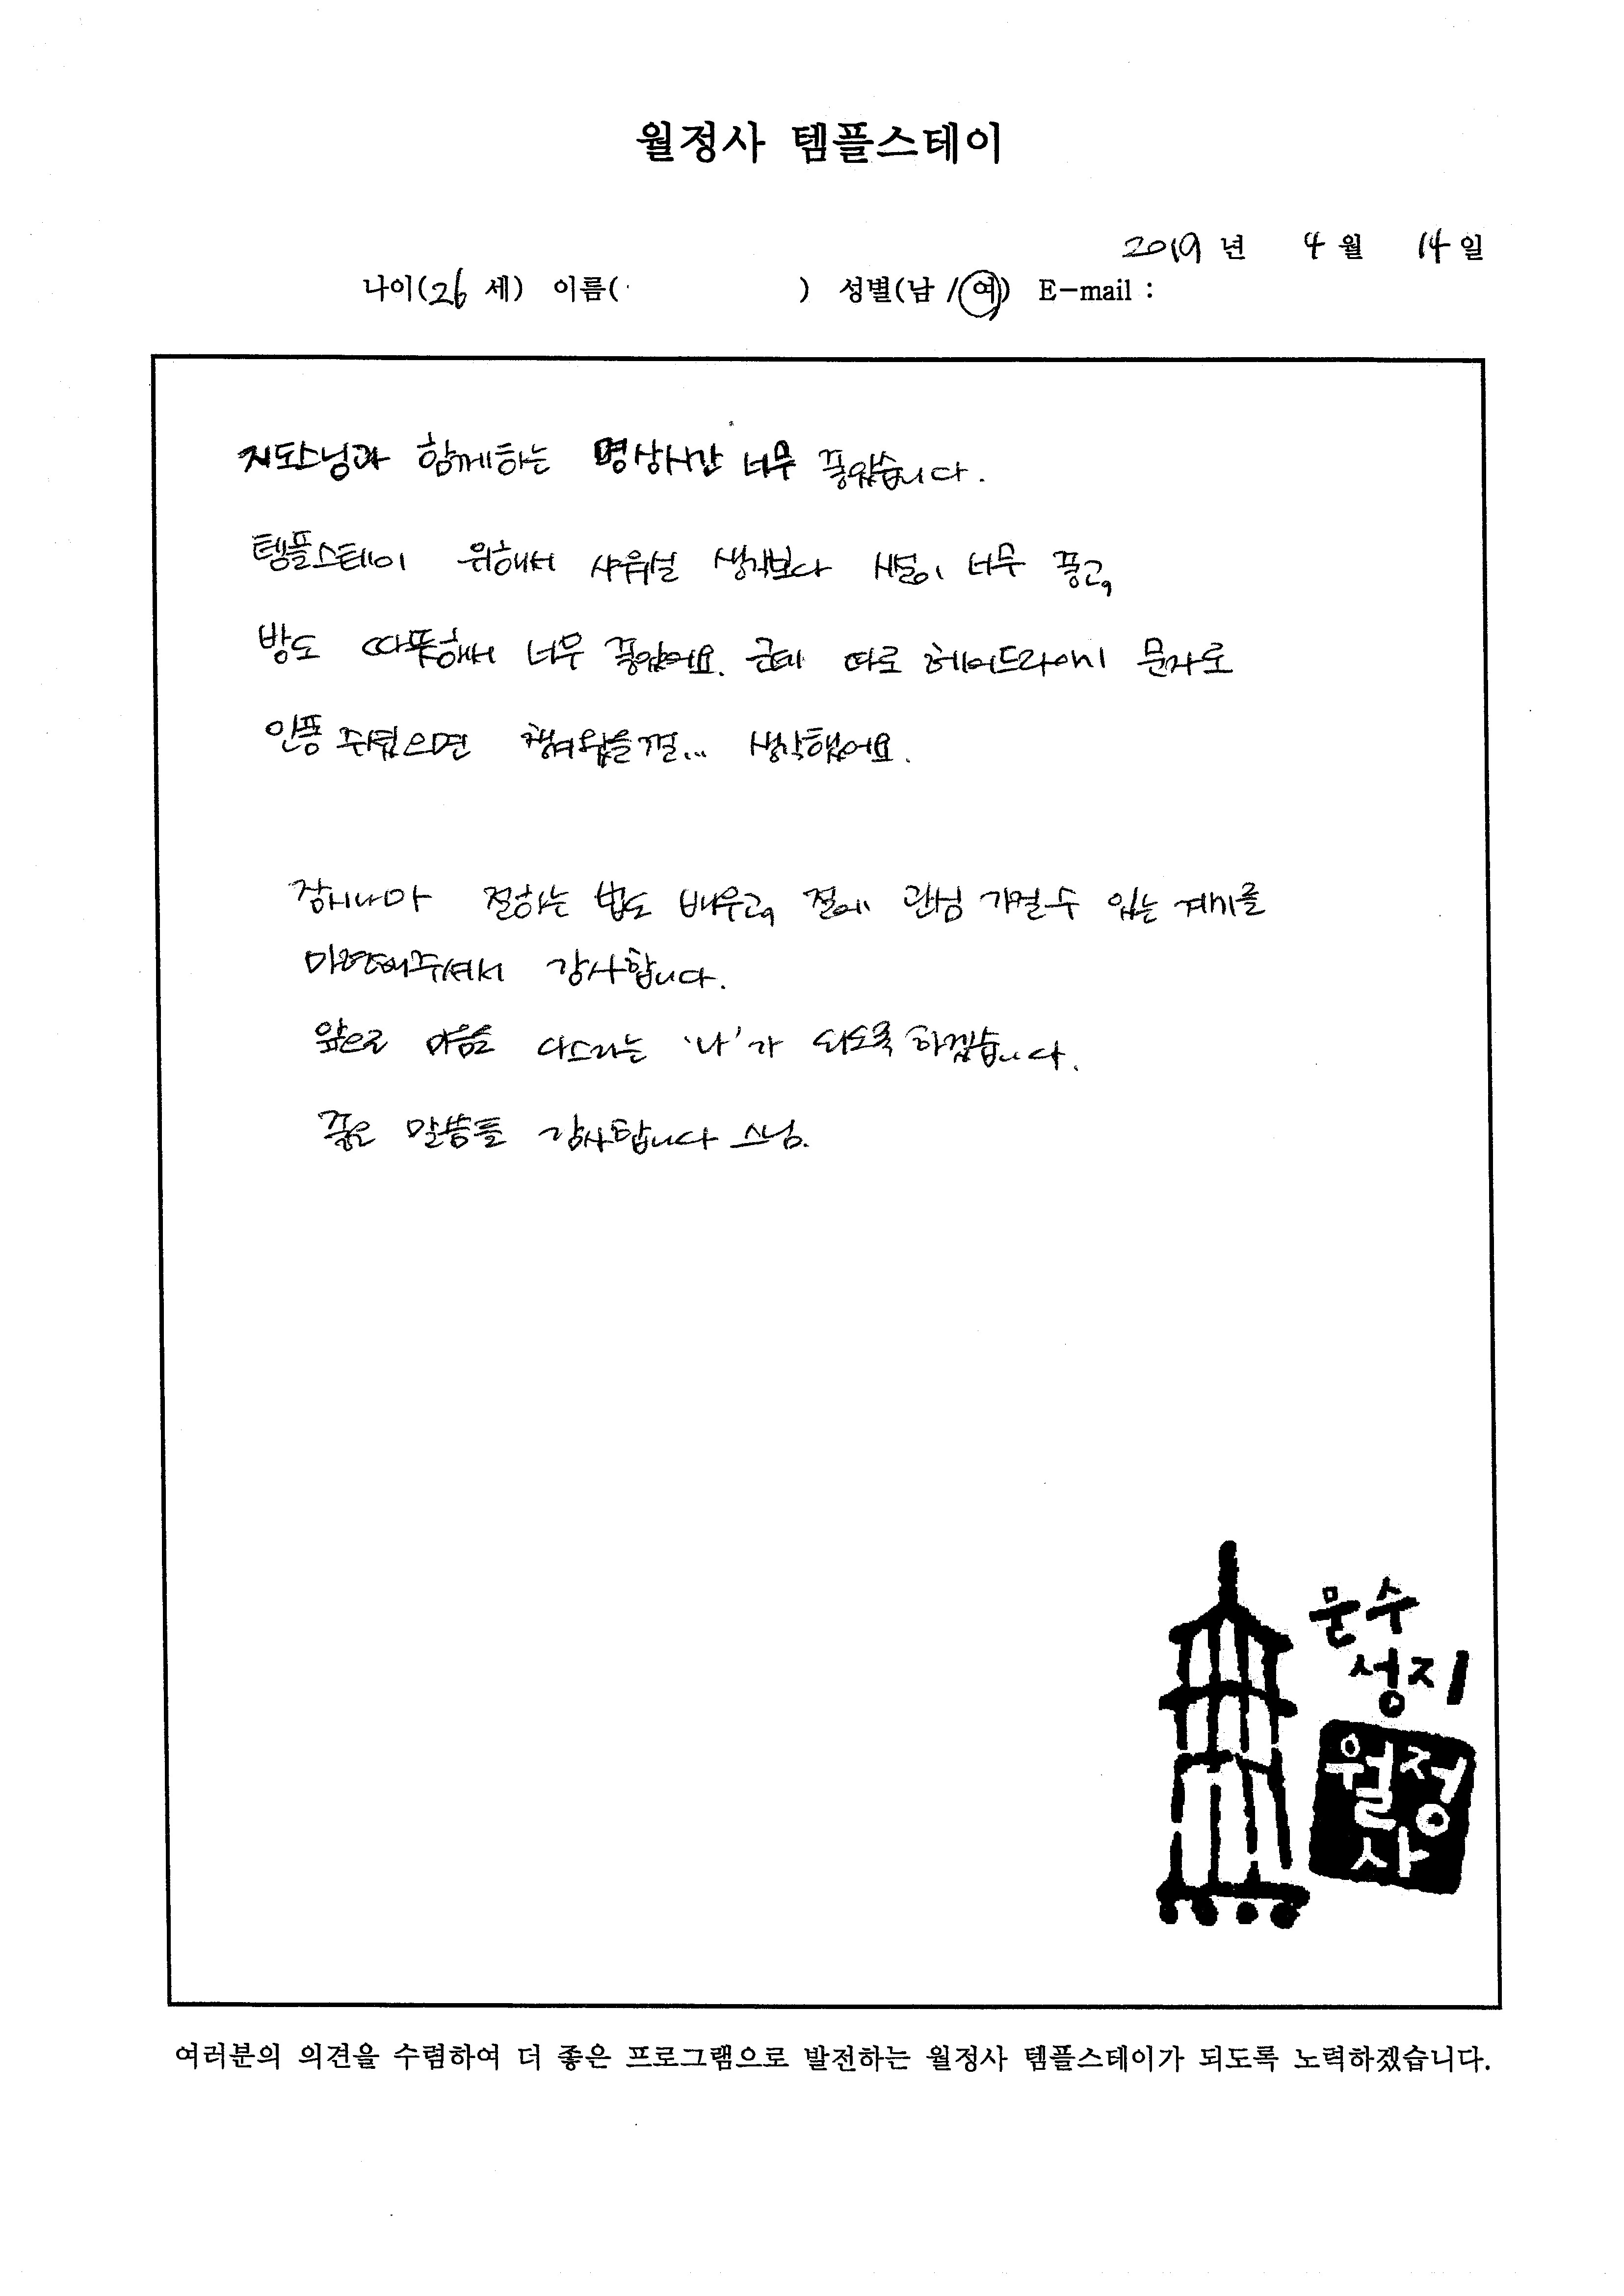 월정사 템플스테이
2019 년 4 월 14 일
나이(26 세) 이름( ) 성별(남 /여) E-mail :
지도스님과 함께하는 명상시간 너무 좋았습니다.
템플스테이 위해서 샤워실 생각보다 시설이 너무 좋고,
방도 따뜻해서 너무 좋았어요. 근데 따로 헤어드라이기 문자로
인폼 주셨으면 챙겨왔을껄... 생각했어요.
잠시나마 절하는 법도 배우고, 절에 관심 가질 수 있는 계기를
마련해주셔서 감사합니다.
앞으로 마음을 다스리는 '나'가 되도록 하겠습니다.
좋은 말씀들 감사합니다 스님.
문수
성지
월정
사
여러분의 의견을 수렴하여 더 좋은 프로그램으로 발전하는 월정사 템플스테이가 되도록 노력하겠습니다.